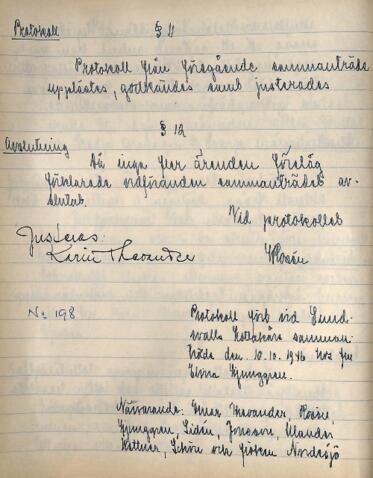 Protokoll § 11
Protokoll från föregående sammanträde
upplästes, godkändes samt justerades
§ 12
Avslutning
Då inga fler ärenden förelåg
förklarade ordföranden sammanträdet av-
slutat.
Vid protokollet
Justeras:
Karin Thavander
No 198
Protokoll förb vid Sund-
svalls Kottakårs samman-
träde den 10.10.1946 hos fru
Elvira Ljunggren.
Närvarande: Thavander, Rosén,
Ljunggren, Lidén, Jonsson, Ulander
Schön och fröken Nordsjö